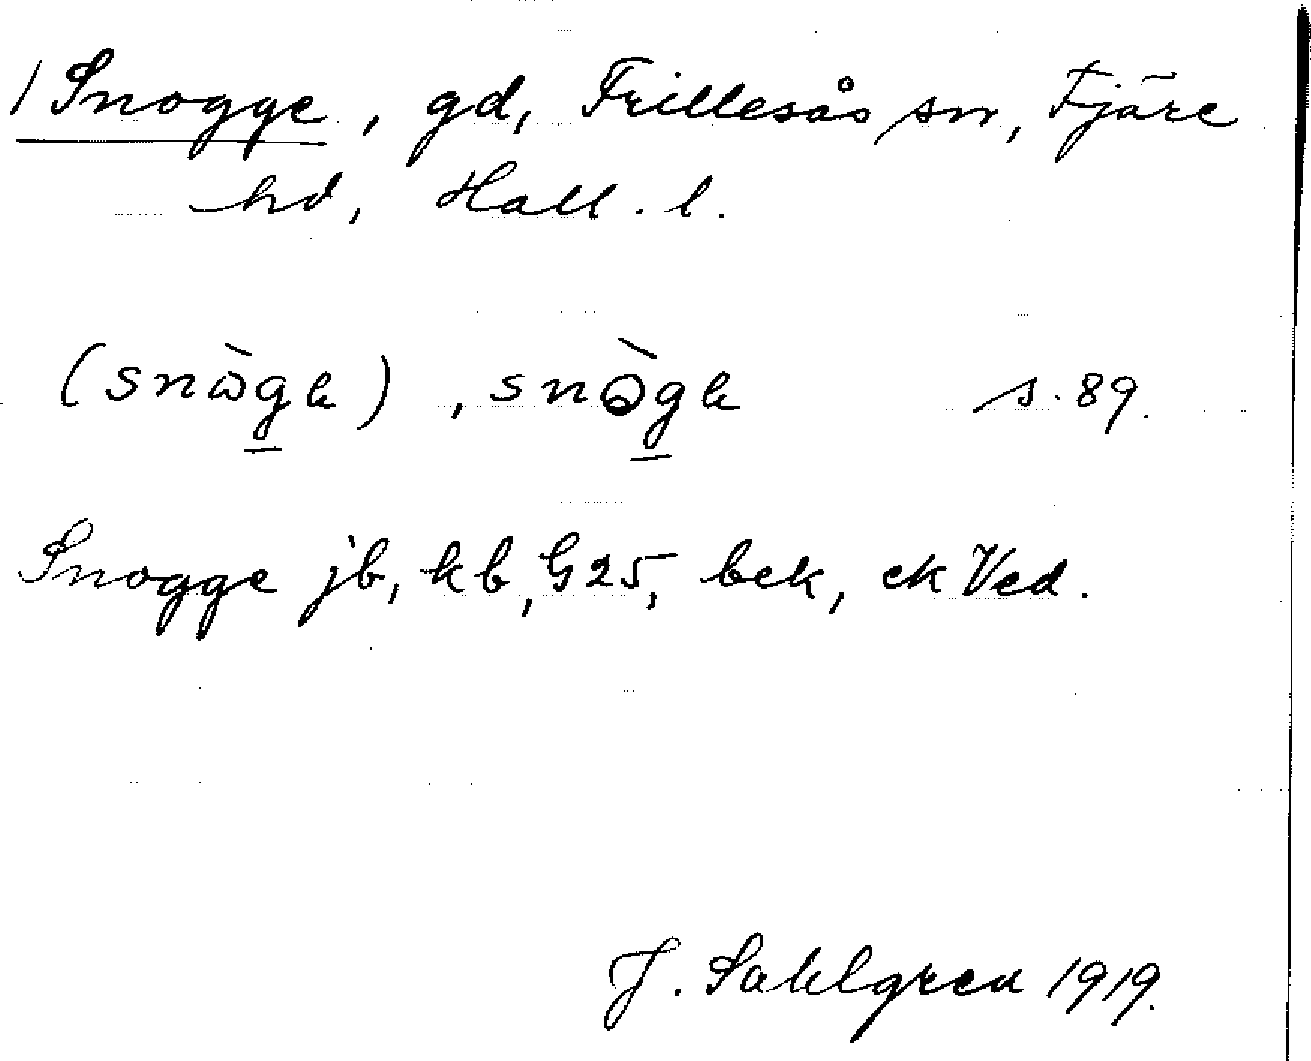 1 Snogge, gd, Frillesås sn, Fjäre
hd, Hall. l.
(snὼgɐ), snὼgɐ s. 89.
Snogge jb, kb, G25, bek, ek Ved.
J. Sahlgren 1919.